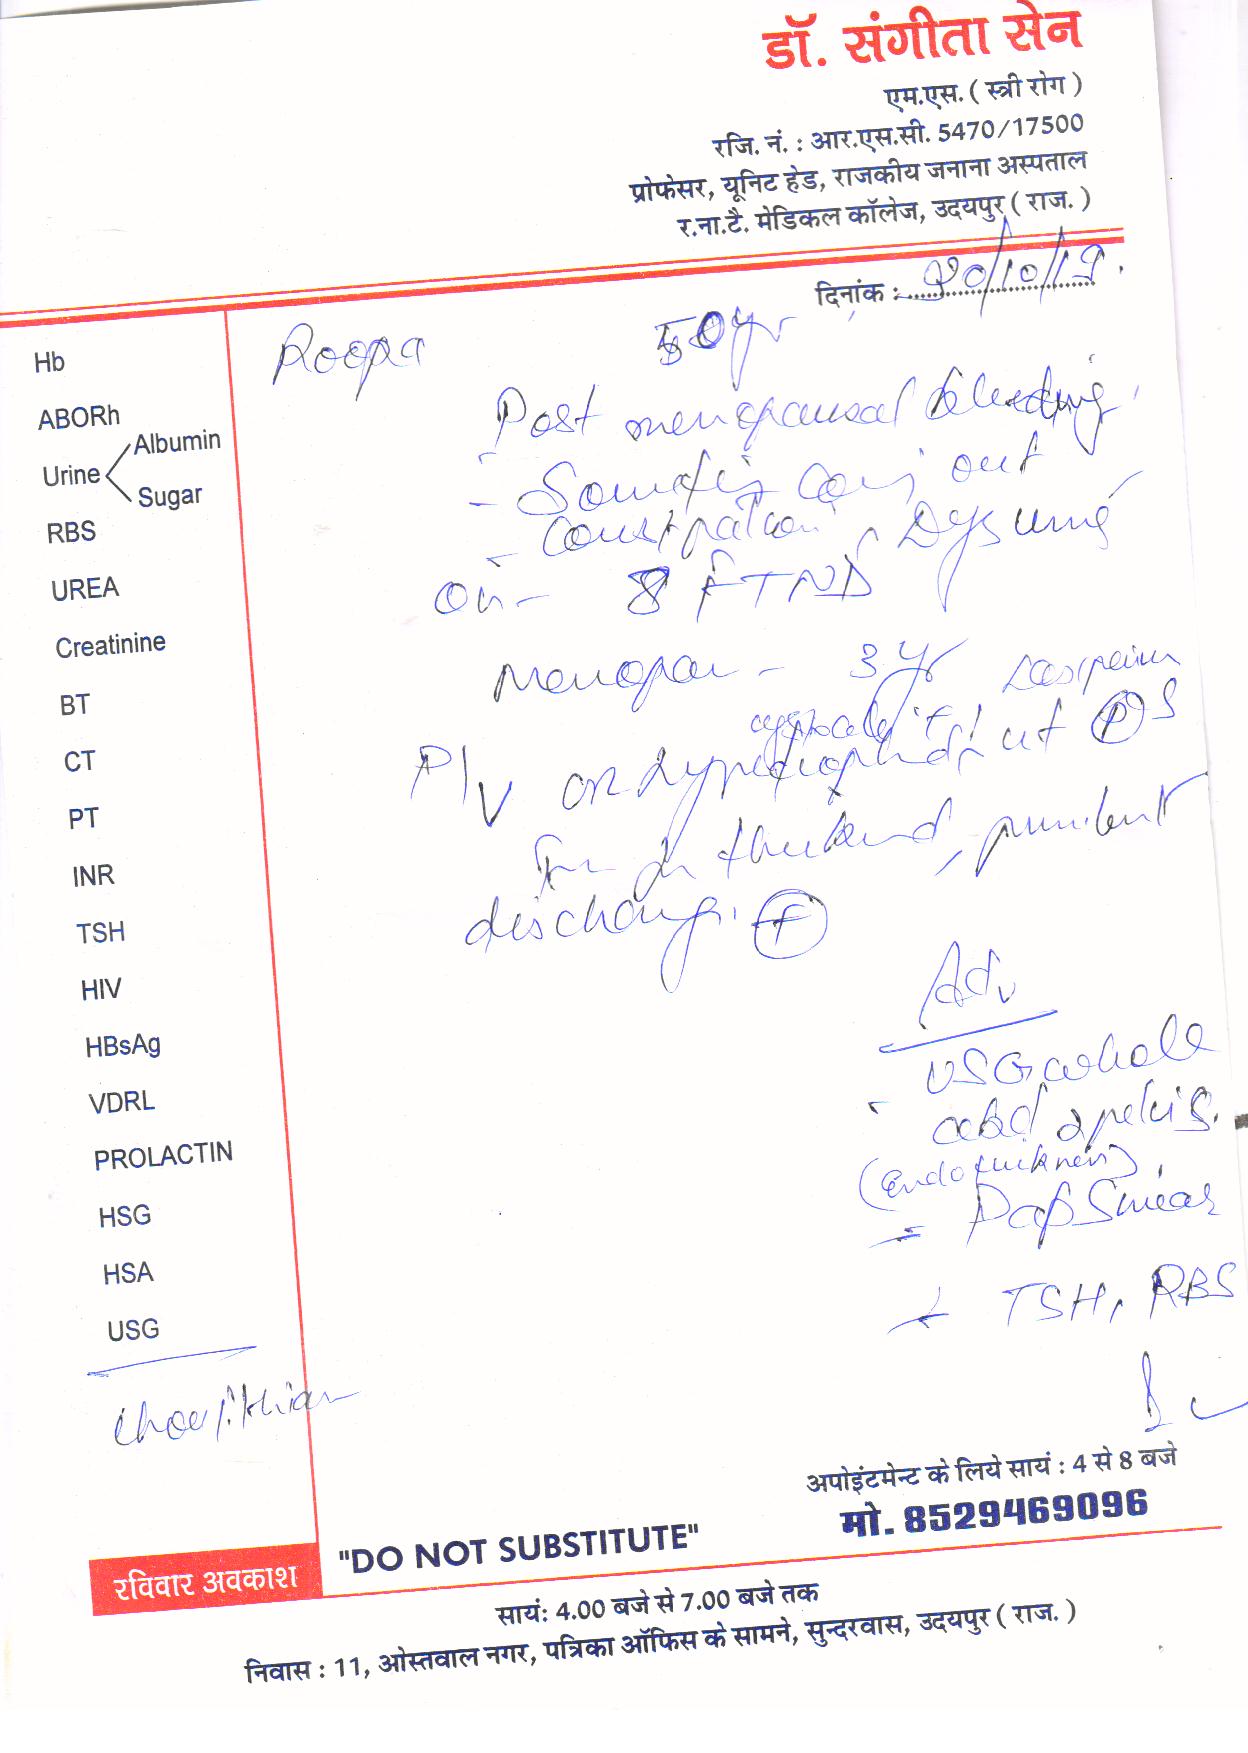 डॉ. संगीता सेन
एम.एस. ( स्त्री रोग )
रजि. नं. : आर.एस.सी. 5470/17500
प्रोफेसर, यूनिट हेड, राजकीय जनाना अस्पताल
र.ना.टै. मेडिकल कॉलेज, उदयपुर ( राज. )
दिनांक : 20/10/19.
Roopa 50yr
Post menopausal bleeding
- Something coming out
- Constipation, Dysuria
OH- 8 FTND
Menopau - 3 yr
P/V
discharge. +
Adv
- USG whole
abd & pelvis.
(endo thickness),
- Pap Smear
- TSH, RBS
Hb
ABORh
Urine Albumin
Sugar
RBS
UREA
Creatinine
BT
CT
PT
INR
TSH
HIV
HBsAg
VDRL
PROLACTIN
HSG
HSA
USG
अपोइंटमेन्ट के लिये सायं : 4 से 8 बजे
मो. 8529469096
"DO NOT SUBSTITUTE"
रविवार अवकाश
सायं: 4.00 बजे से 7.00 बजे तक
निवास : 11, ओस्तवाल नगर, पत्रिका ऑफिस के सामने, सुन्दरवास, उदयपुर ( राज. )